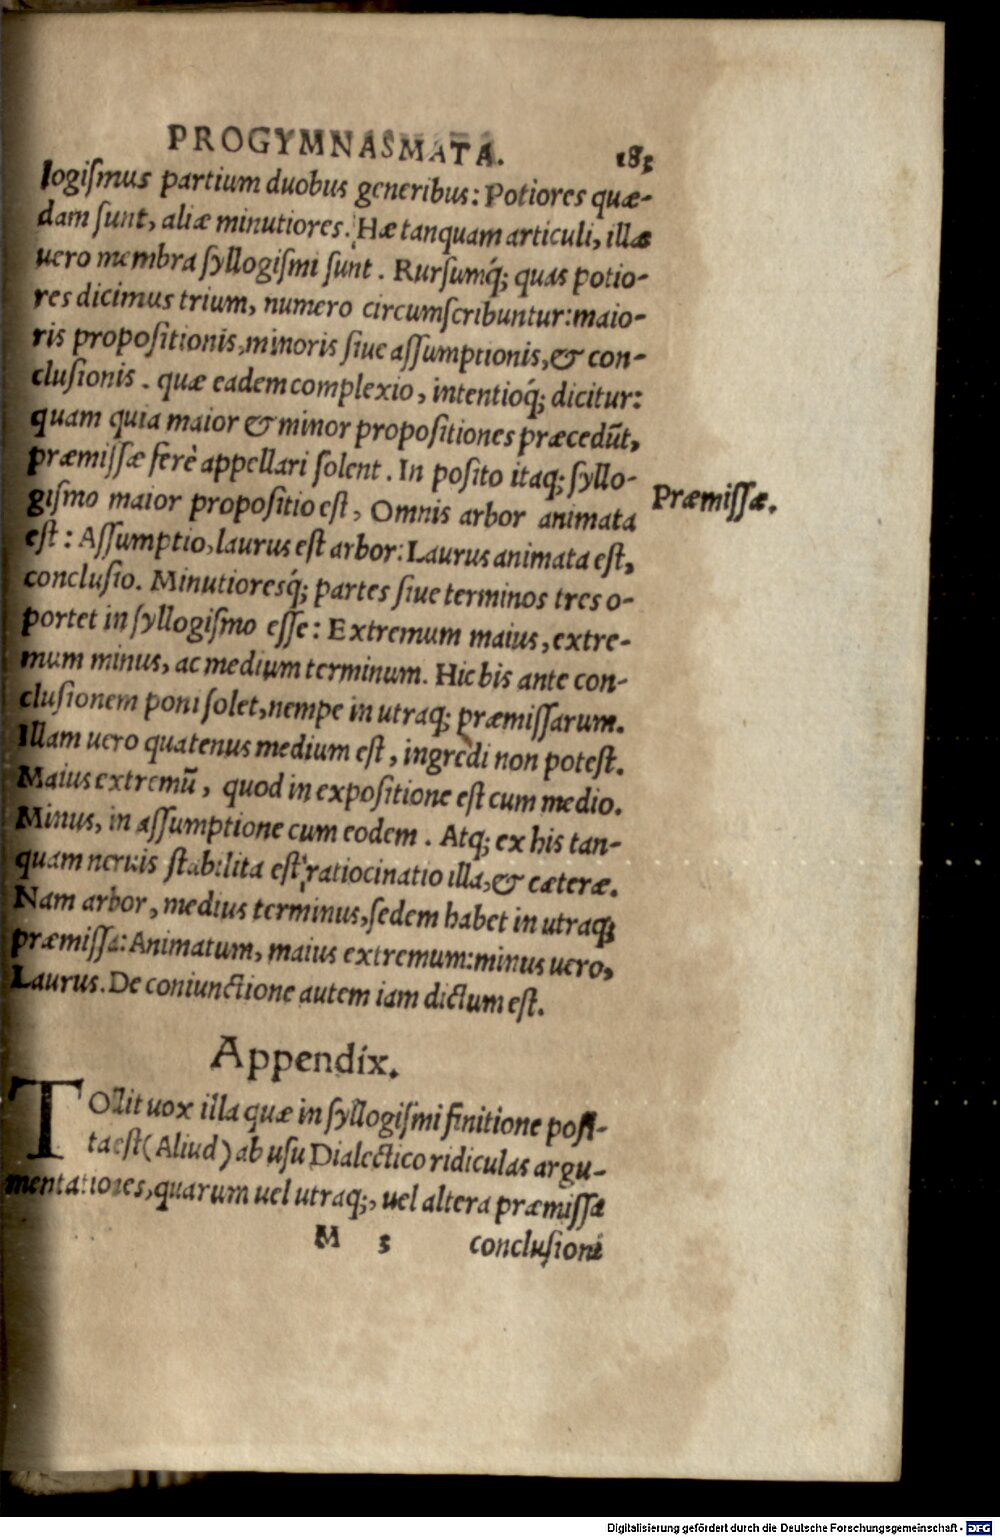 PROGYMNASMATA. 185
logiſmus partium duobus generibus: Potiores quæ-
dam ſunt, aliæ minutiores. Hæ tanquam articuli, illæ
uero membra ſyllogiſmi ſunt. Rurſumq́; quas potio-
res dicimus trium, numero circumſcribuntur: maio-
ris propoſitionis, minoris ſiue aſſumptionis, & con-
cluſionis. quæ eadem complexio, intentioq́; dicitur:
quam quia maior & minor propoſitiones præcedūt,
præmiſſæ ferè appellari ſolent. In poſito itaq; ſyllo-
Præmiſſæ.
giſmo maior propoſitio eſt, Omnis arbor animata
eſt: Aſſumptio, laurus eſt arbor: Laurus animata eſt,
concluſio. Minutioresq́; partes ſiue terminos tres o-
portet in ſyllogiſmo eſſe: Extremum maius, extre-
mum minus, ac medium terminum. Hic bis ante con-
cluſionem poni ſolet, nempe in utraq; præmiſſarum.
Illam uero quatenus medium eſt, ingredi non poteſt.
Maius extremū, quod in expoſitione eſt cum medio.
Minus, in aſſumptione cum eodem. Atq; ex his tan-
quam neruis ſtabilita eſt ratiocinatio illa, & cæteræ.
Nam arbor, medius terminus, ſedem habet in utraq;
præmiſſa: Animatum, maius extremum: minus uero,
Laurus. De coniunctione autem iam dictum eſt.
Appendix.
TOllit uox illa quæ in ſyllogiſmi finitione poſi-
ta eſt (Aliud) ab uſu Dialectico ridiculas argu-
mentationes, quarum uel utraq;, uel altera præmiſſa
M 5 concluſioni
Digitalisierung gefördert durch die Deutsche Forschungsgemeinschaft - DFG